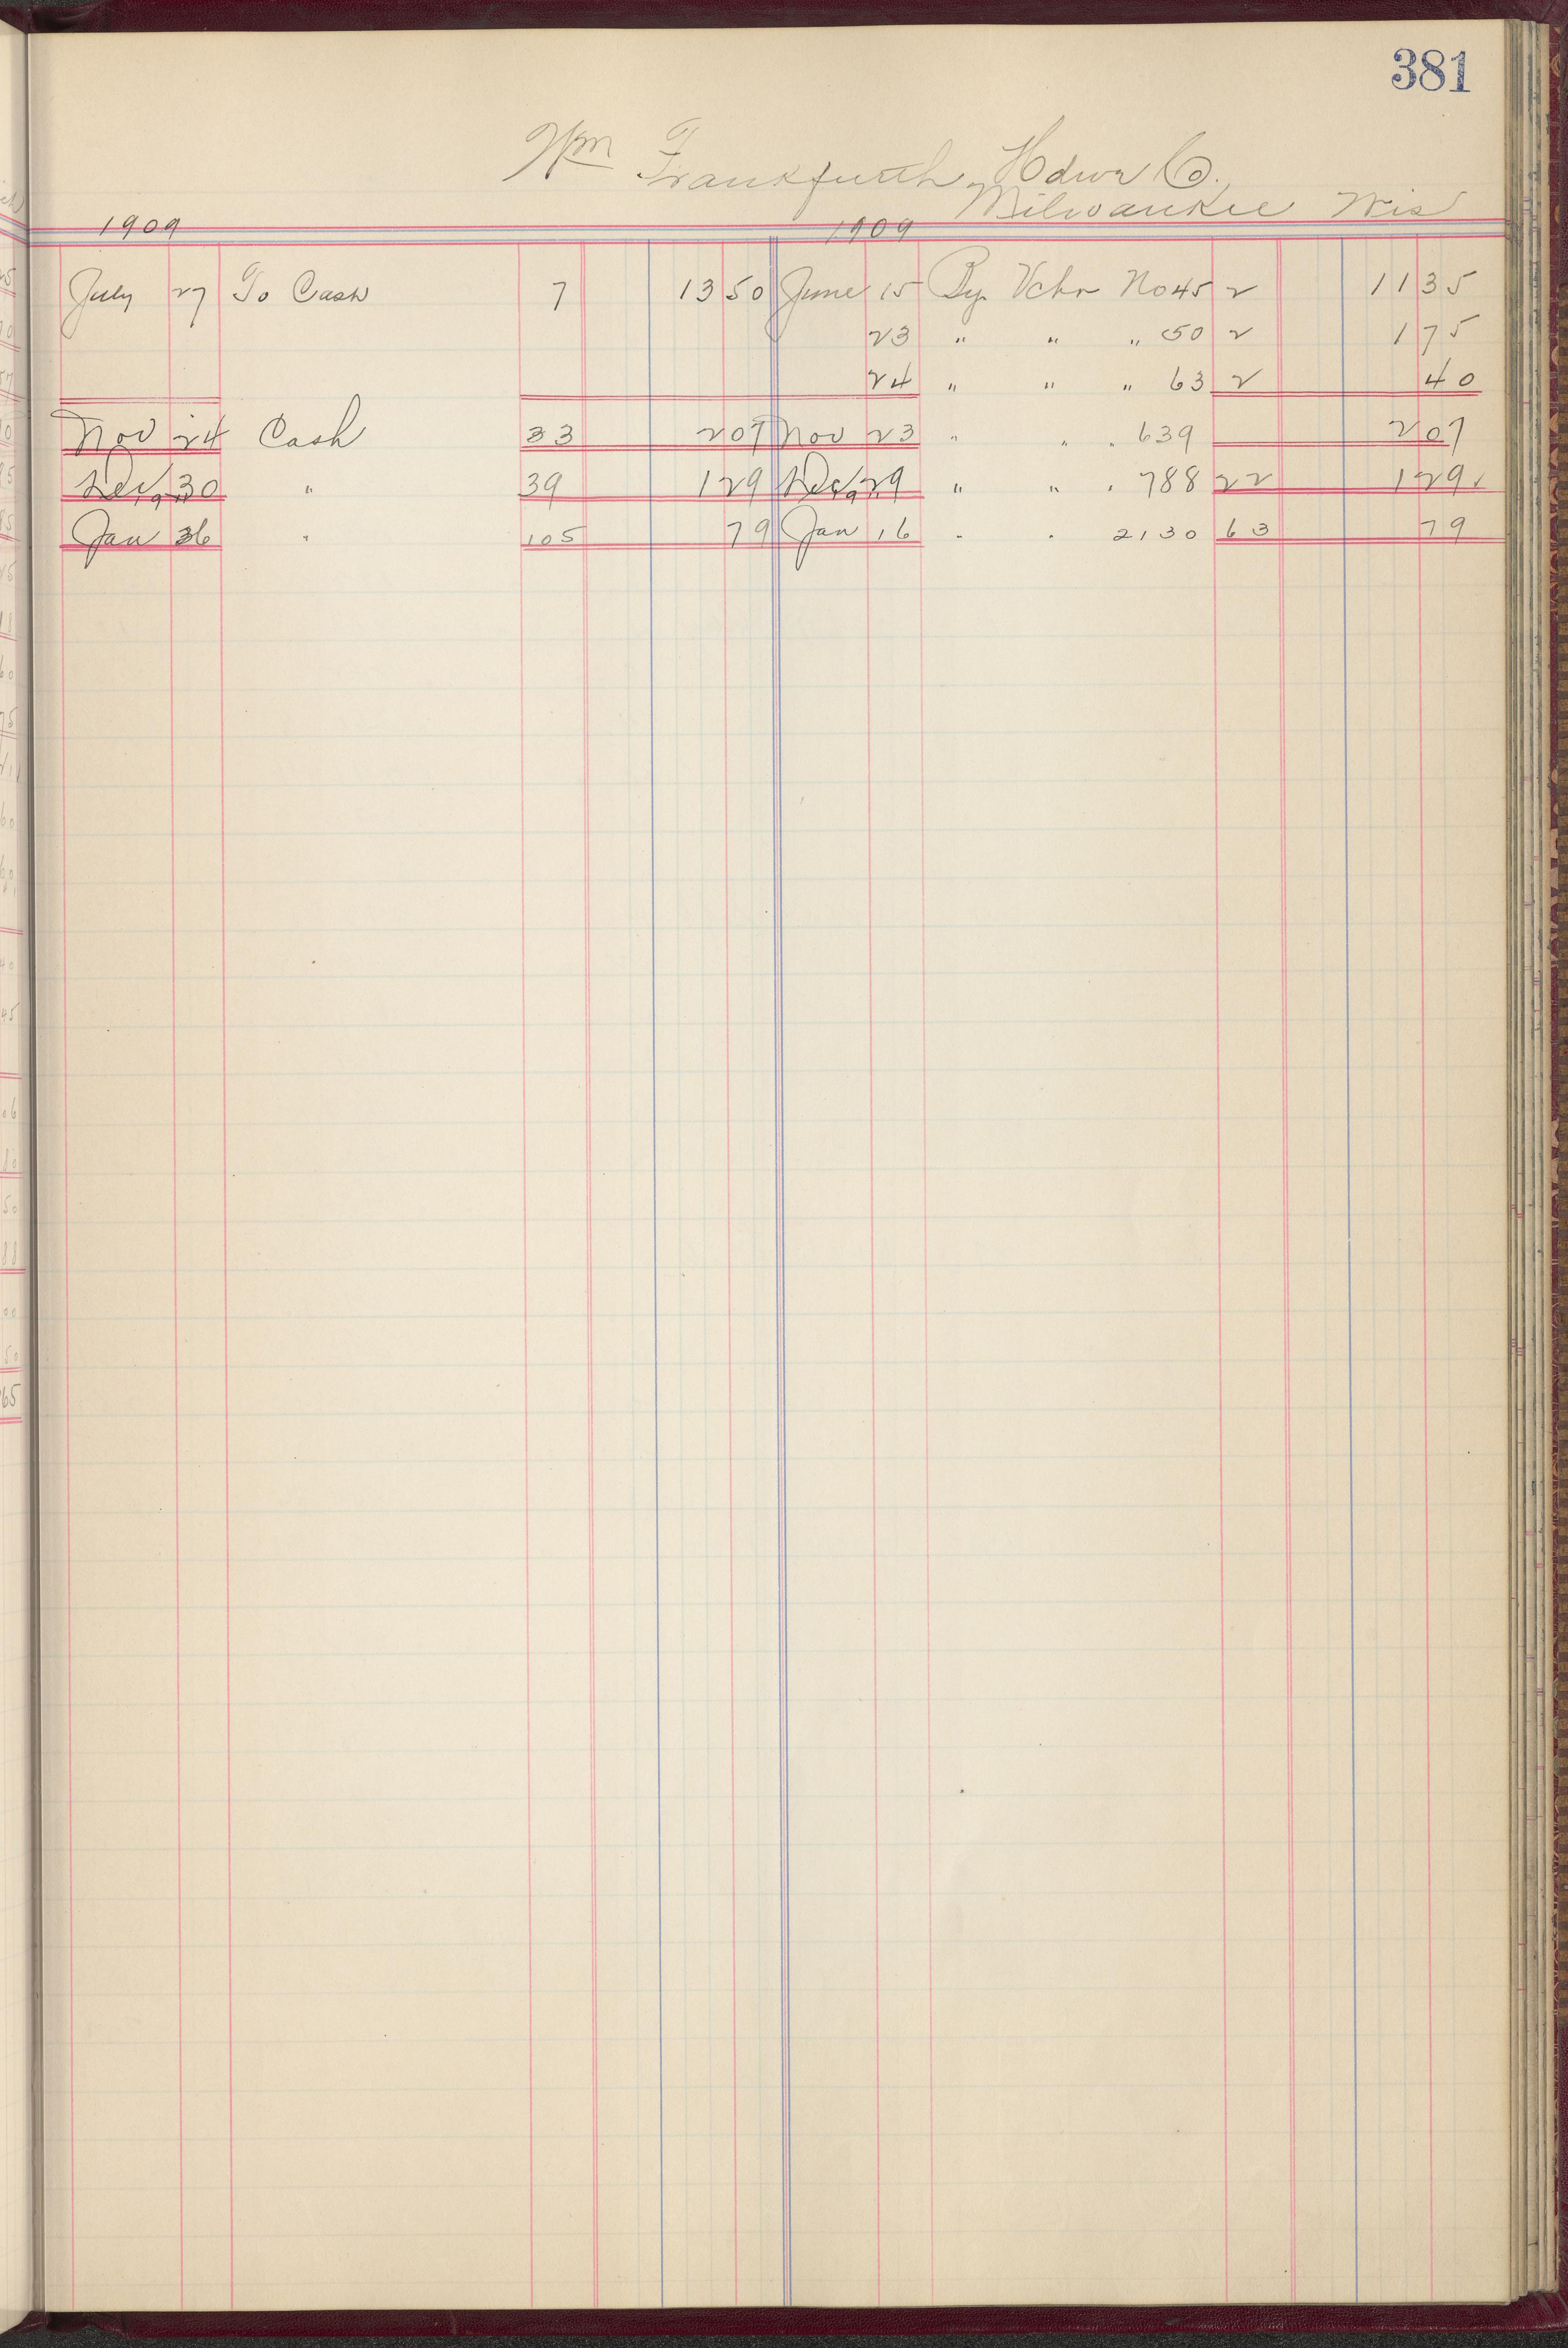 381
Wm Frankfurth Hdwr Co.,
Milwaukee Wis
1909 1909
July 27 To Cash 7 13 50 June 15 By Vchr No 45 2 11 35
23 " " " 50 2 1 75
24 " " " 63 2 40
Nov 24 Cash 33 2 07 Nov 23 " " " 639 2 07
Dec 30 " 39 1 29 Dec 29 " " " 788 22 1 29
Jan 26 " 105 79 Jan 16 " " 2130 63 79